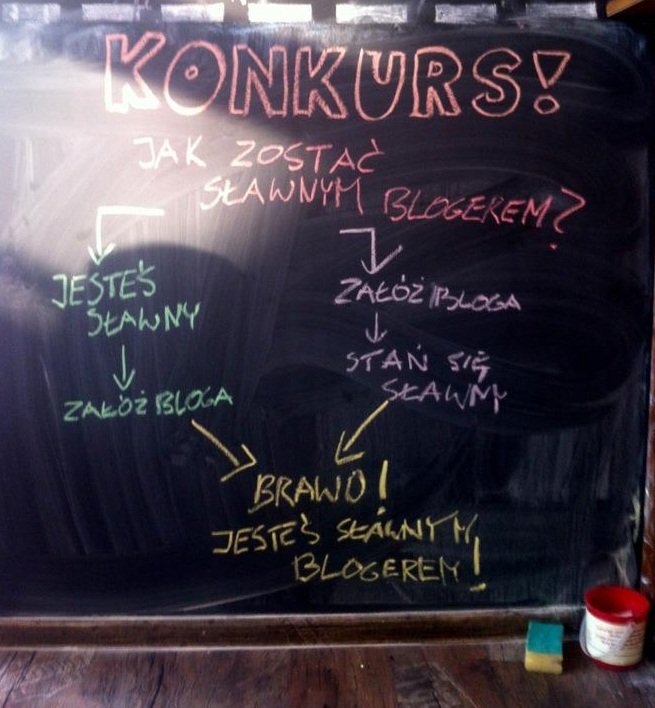 KONKURS!
JAK ZOSTAĆ
SŁAWNYM BLOGEREM?
JESTEŚ
SŁAWNY
ZAŁÓŻ BLOGA
ZAŁÓŻ BLOGA
STAŃ SIĘ
SŁAWNY
BRAWO!
JESTEŚ SŁAWNYM
BLOGEREM!